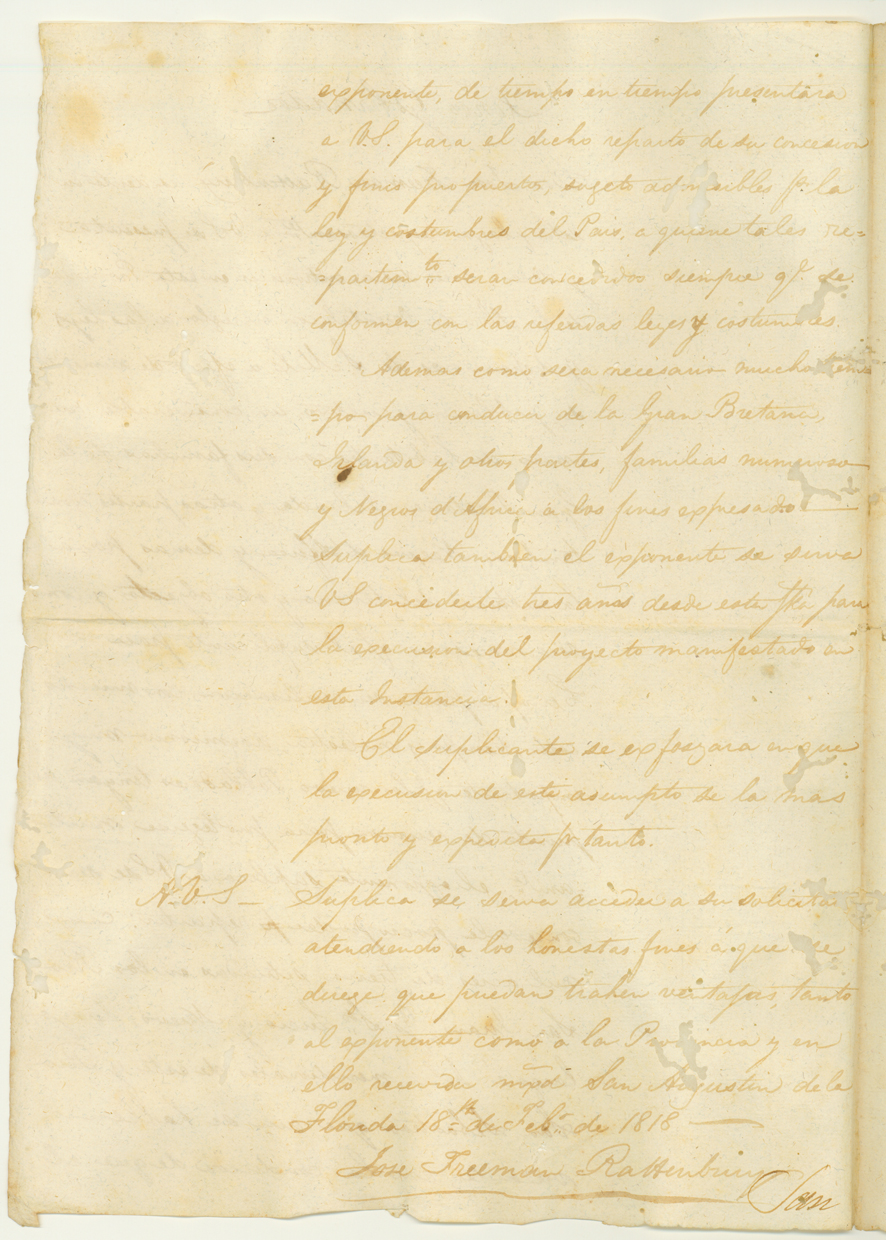 exponente, de tiempo en tiempo presentara
a V.S. para el dicho reparto de su concesion
y fines propuertos, sugeto admisibles pr. la
ley y costumbres del Pais, a quiene tales re=
=partimto seran concedidos siempre qe. se
conformen con las referidas leyes y costumbres.
Ademas como sera necesario mucho tiem
=po para conducir de la Gran Bretana,
Irlanda y otros partes, familias numeroso
y Negros d'Africa a los fines expresado
Suplica tambien el exponente se sirva
VS concederle tres años desde esta fha para
la execusion del proyecto manifestado en
esta Instancia.
El suplicante se exforzara en que
la execusion de este asumpto se la mas
pronto y expedita pr. tanto.
A.V.S— Suplica se serva acceder a su solicita
atendiendo a los honestas fines á que se
direge que puedan traher ventajas, tanto
al exponente como a la Provincia y en
ello recevida mrd San Augustin de la
Florida 18 de Febo. de 1818
Jose Freeman Rattenbury
San